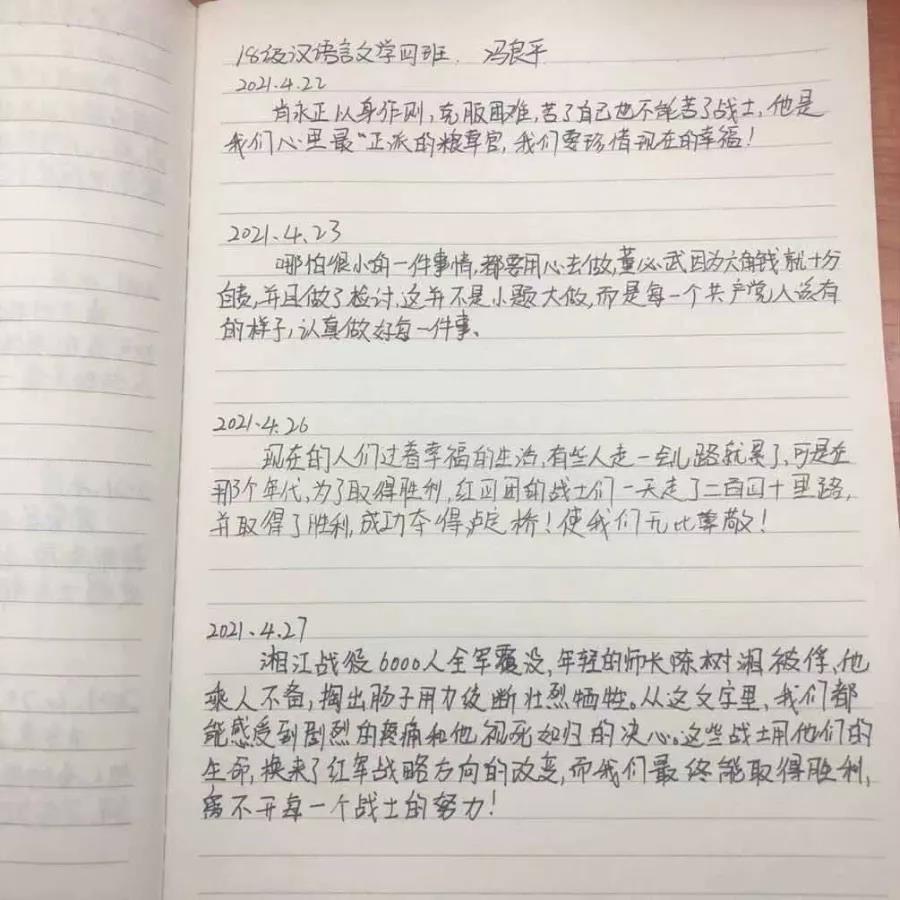 18级汉语言文学四班. 冯良平
2021.4.22
肖永正以身作则,克服困难,苦了自己也不能苦了战士,他是
我们心里最“正派的粮草官,我们要珍惜现在的幸福!
2021.4.23
哪怕很小的一件事情,都要用心去做,董必武因为六角钱就十分
自责,并且做了检讨.这并不是小题大做,而是每一个共产党人该有
的样子,认真做好每一件事、
2021.4.26
现在的人们过着幸福的生活,有些人走一会儿路就累了,可是在
那个年代,为了取得胜利,红四团的战士们一天走了二百四十里路,
并取得了胜利,成功夺得泸定桥!使我们无比尊敬!
2021.4.27
湘江战役6000人全军覆没,年轻的师长陈树湘被俘,他
乘人不备,掏出肠子用力绞断壮烈牺牲。从这文字里,我们都
能感受到剧烈的疼痛和他视死如归的决心。这些战士用他们的
生命,换来了红军战略方向的改变,而我们最终能取得胜利,
离不开每一个战士的努力!